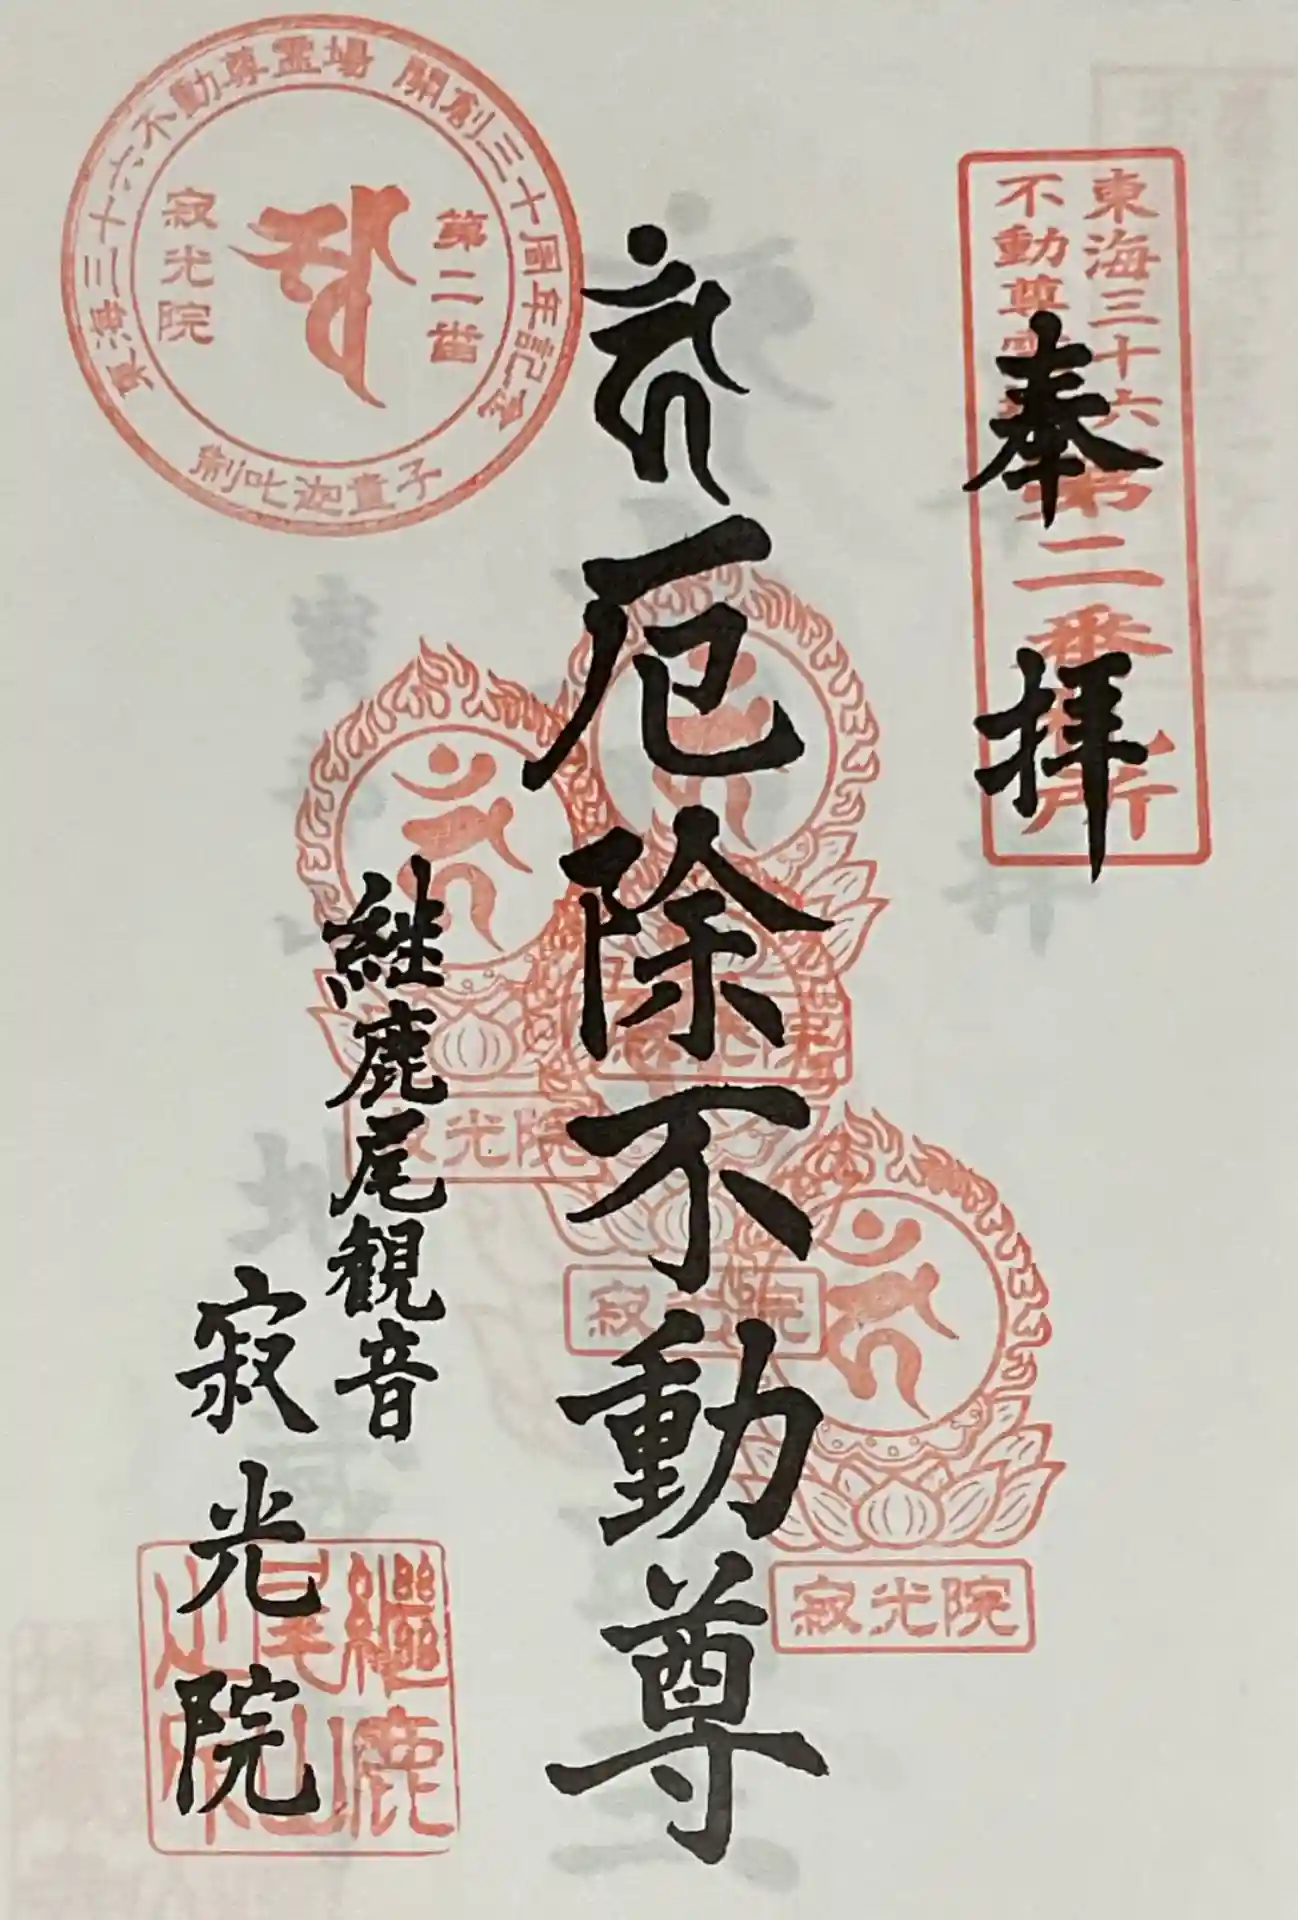 奉拝
東海三十六
不動尊霊場
第二番札所
厄除不動尊
継鹿尾観音
寂光院
東海三十六不動尊霊場 開創三十周年記念
第二番
寂光院
制吒迦童子
寂光院
寂光院
寂光院
寂光院
継鹿
尾山